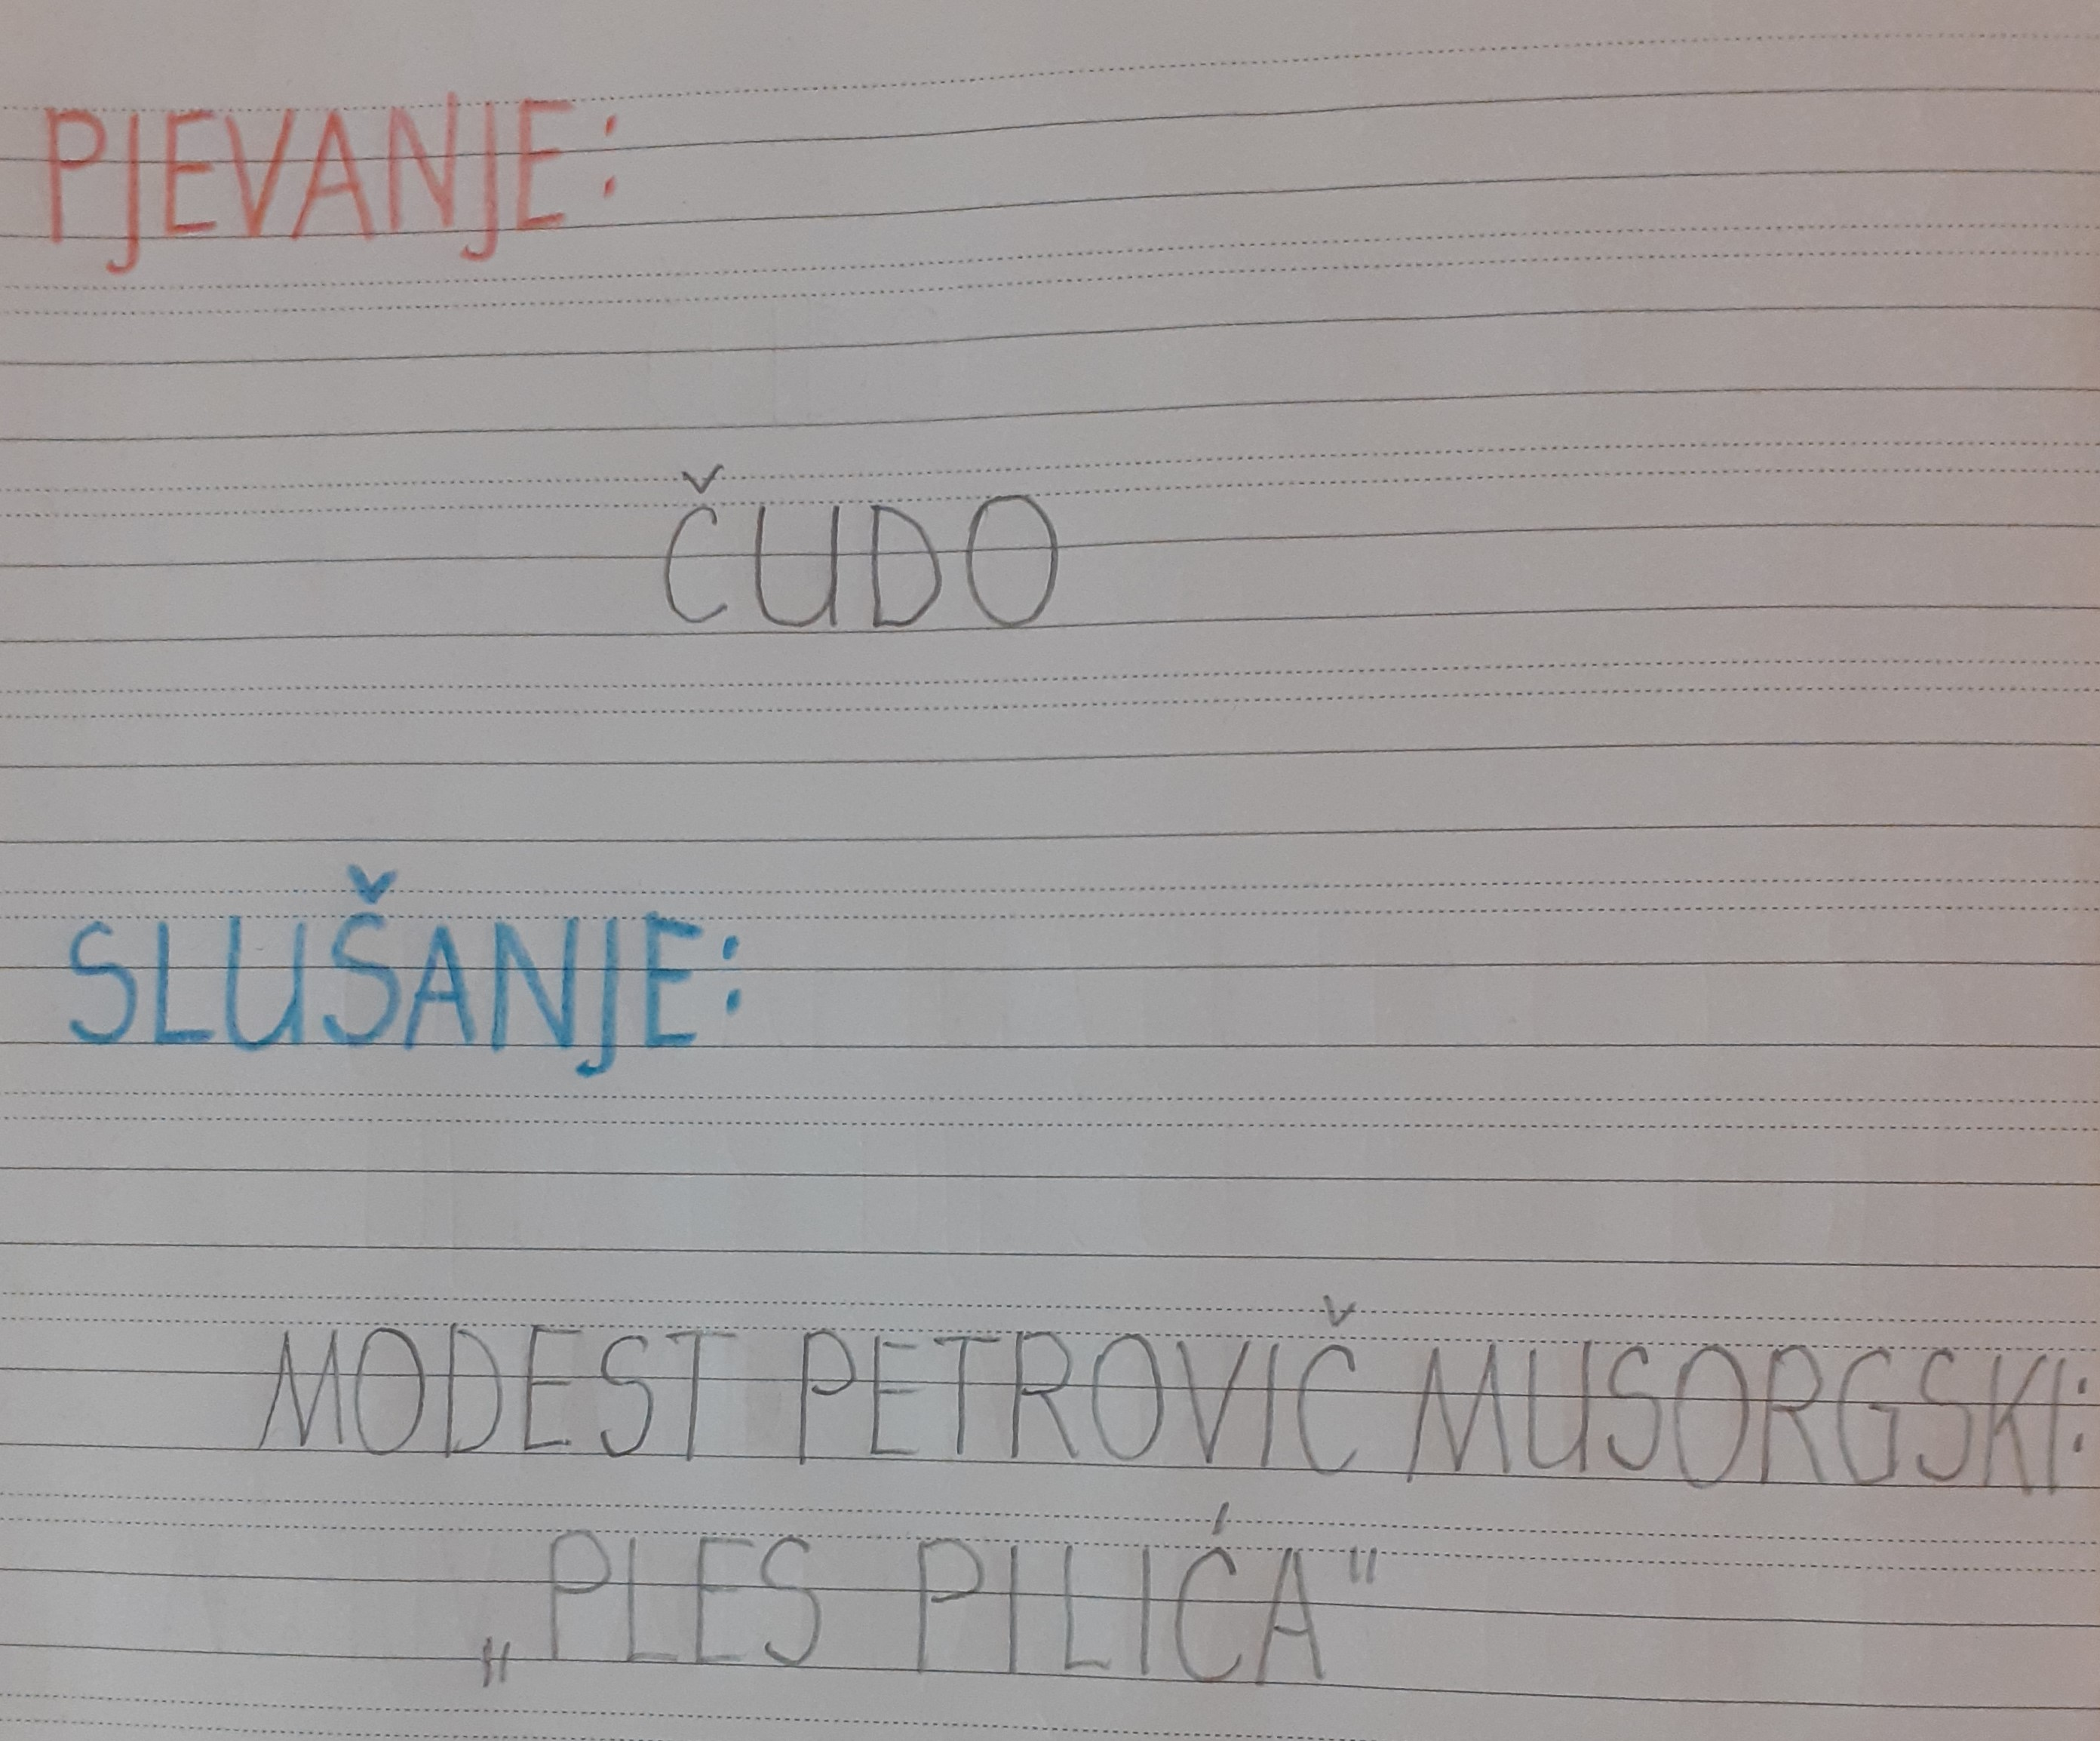 PJEVANJE:
ČUDO
SLUŠANJE:
MODEST PETROVIČ MUSORGSKI:
„PLES PILIĆA"